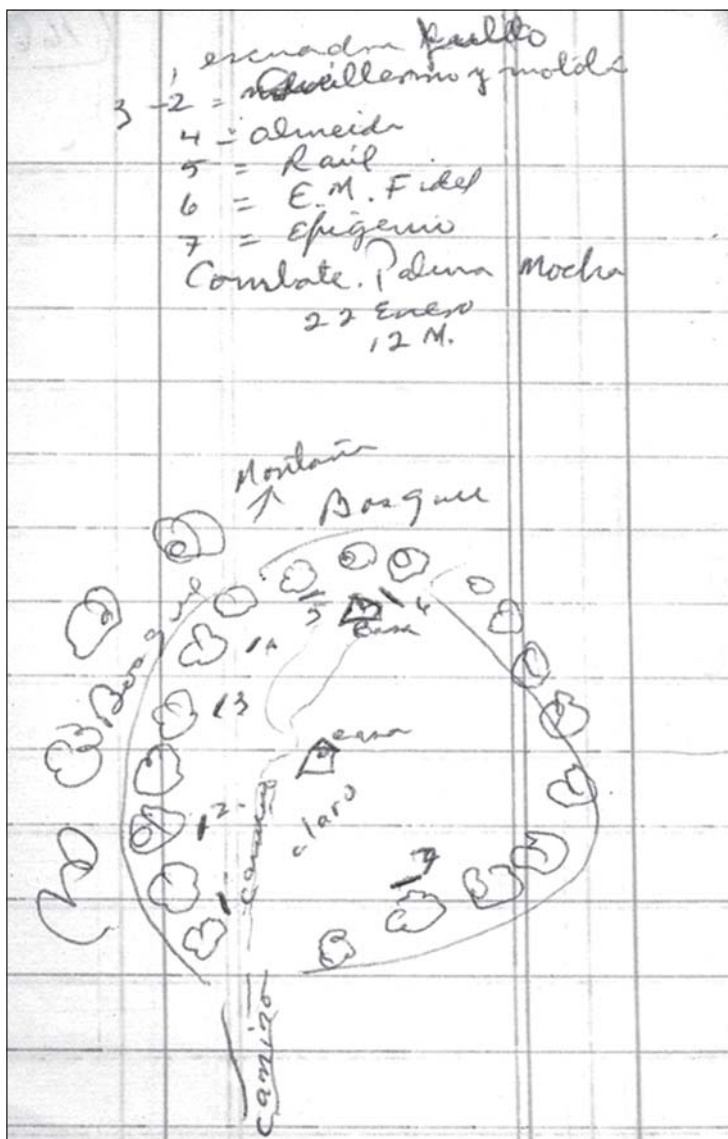 1 escuadra
3 - 2 = Guillermo y
4 = Almeida
5 = Raúl
6 = E.M. Fidel
7 = Efigenio
Combate. Palma Mocha
22 Enero
12 M.
Montaña
Bosque
Bosque
5
6
casa
4
3
casa
2
claro
camino
7
1
camino